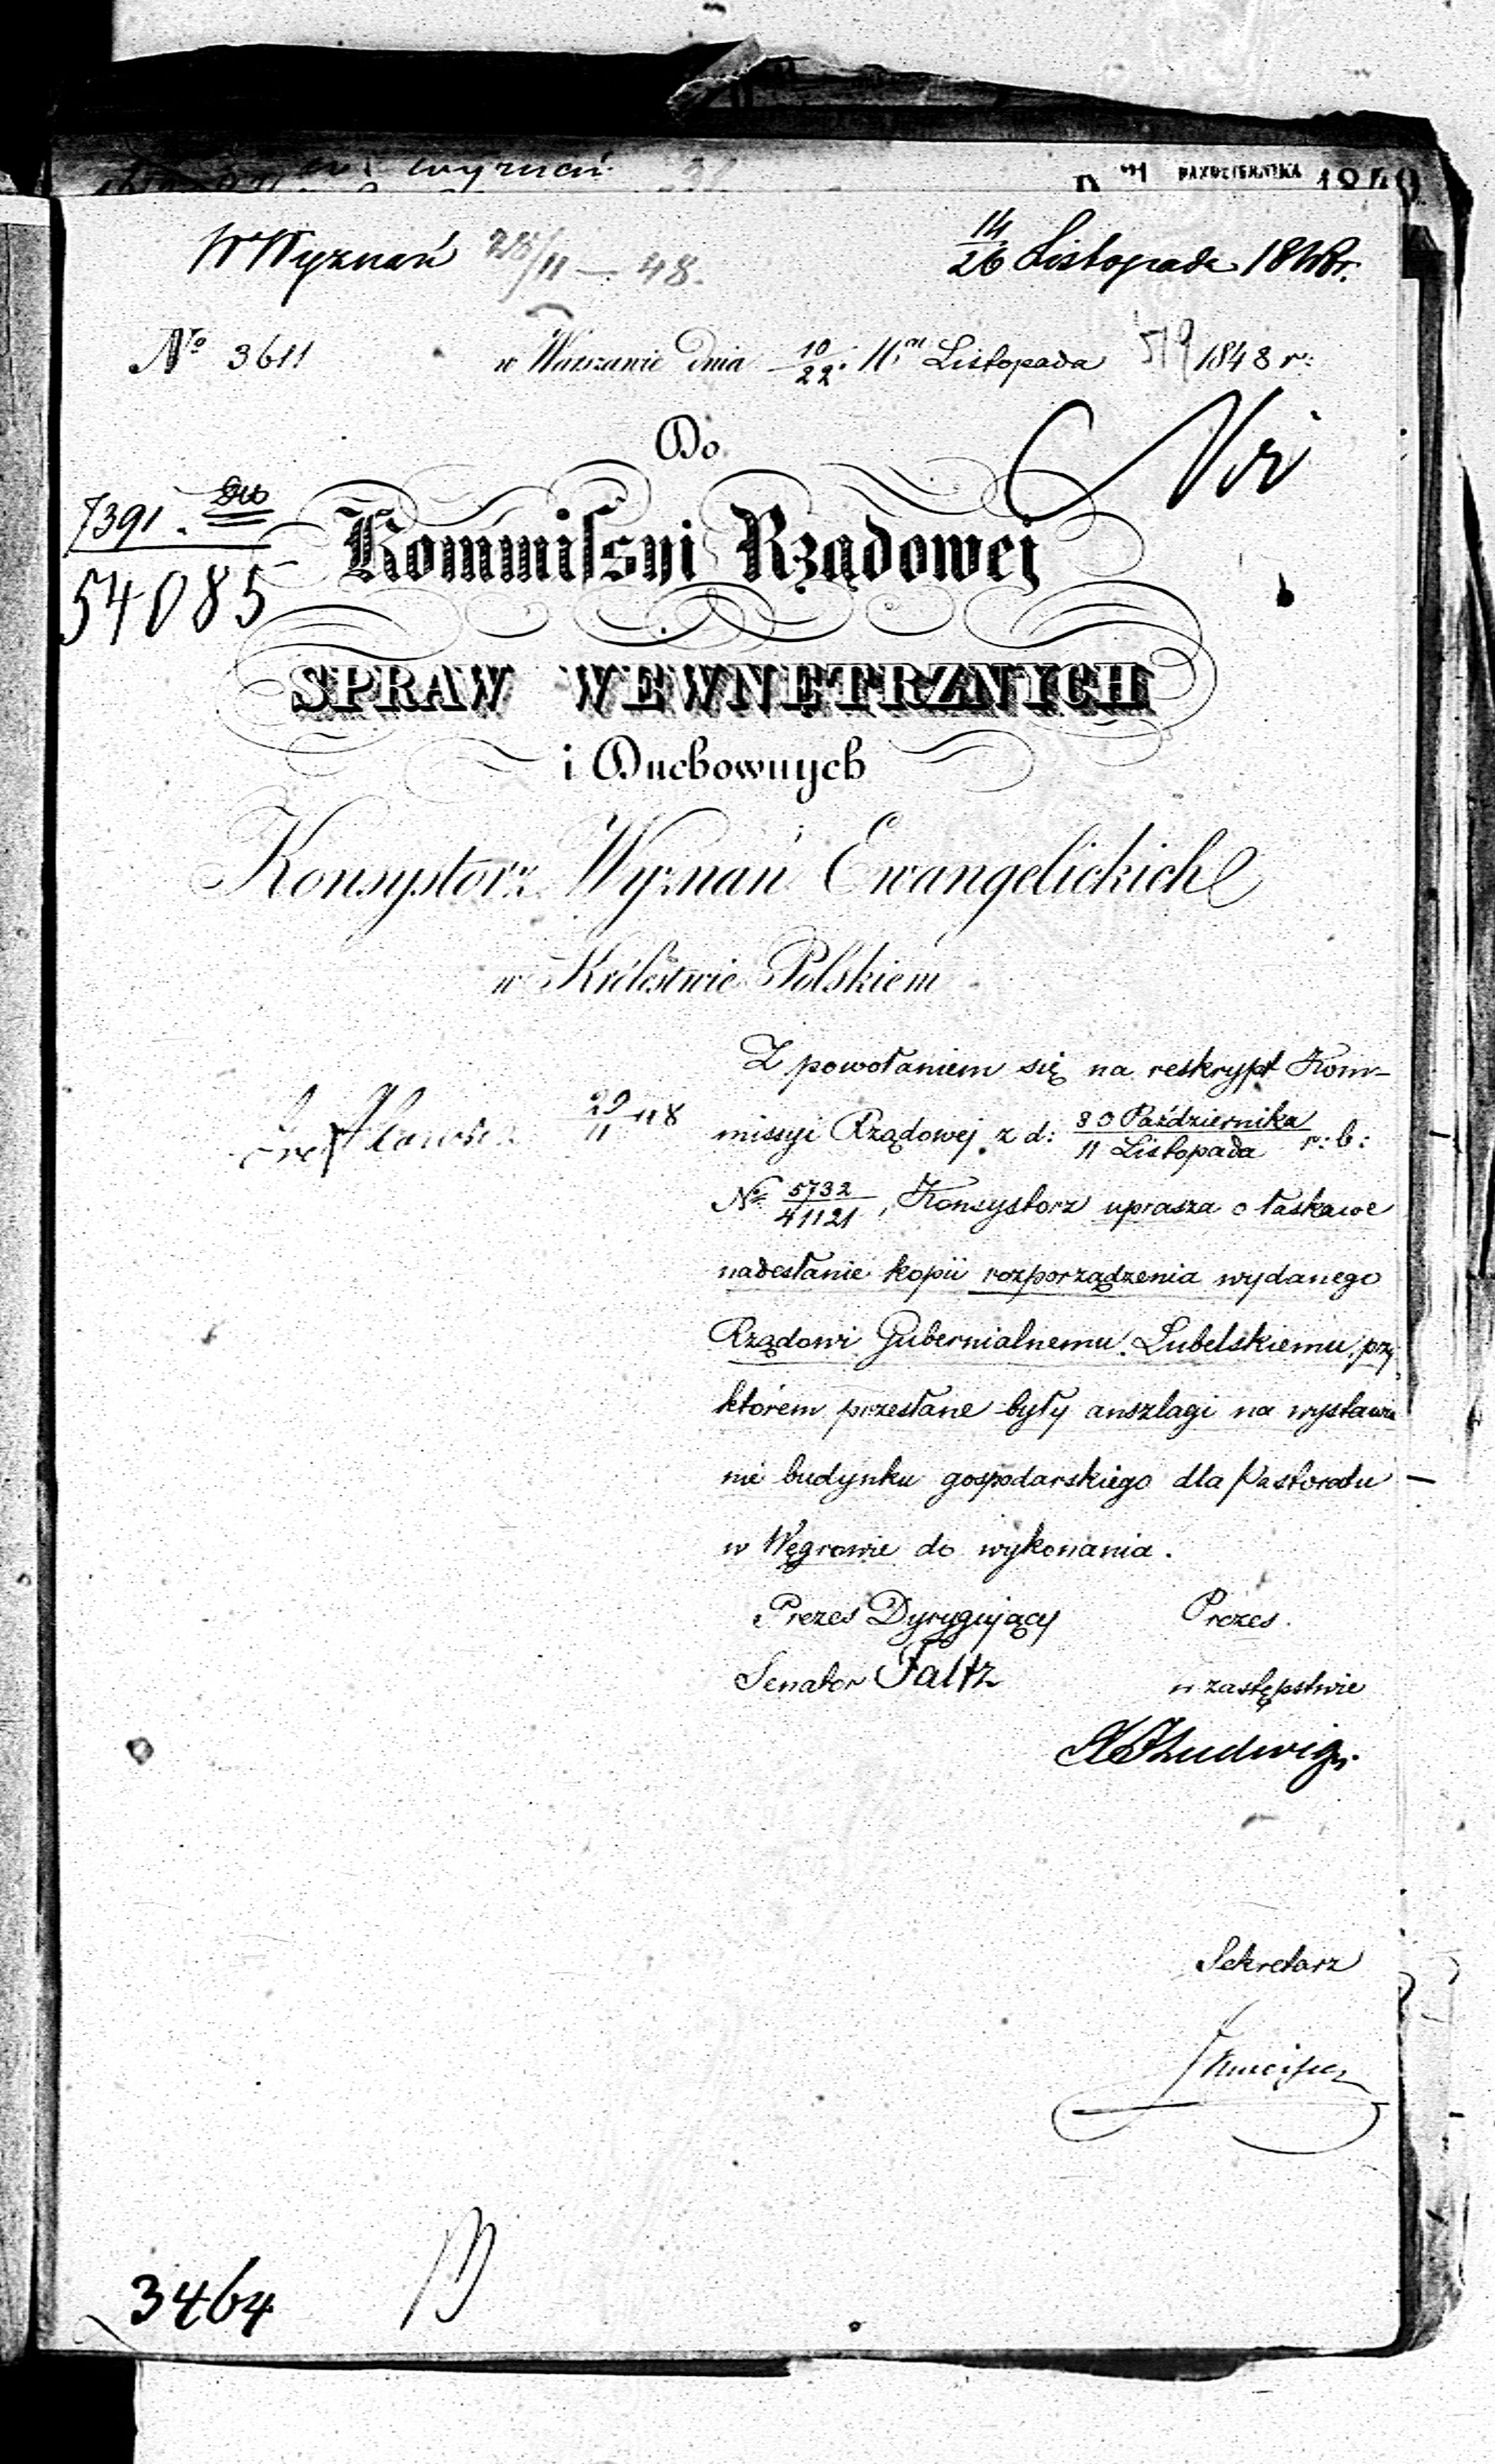 wyznań
PAŹDZIERNIKA 1849
W Wyznań 28/11 — 48.
14/26 Listopada 1848 r.
№ 3611 w Warszawie dnia 10/22 Listopada 519 1848 r:
Do
7391.
54085
Kommissyi Rządowej
SPRAW WEWNĘTRZNYCH
i Duchownych
Konsystorz Wyznań Ewangelickich
w Królestwie Polskiem
Z powołaniem się na reskrypt Kom-
29/11 48
missyi Rządowej z d: 30 Października/11 Listopada r: b:
№ 5732/41121, Konsystorz uprasza o łaskawe
nadesłanie kopii rozporządzenia wydanego
Rządowi Gubernialnemu Lubelskiemu, przy
którem przesłane były anszlagi na wystawie
nie budynku gospodarskiego dla Pastoratu
w Węgrowie do wykonania.
Prezes Dyrygujący Prezes.
Senator Faltz w zastępstwie
Ludwig
Sekretarz
3464